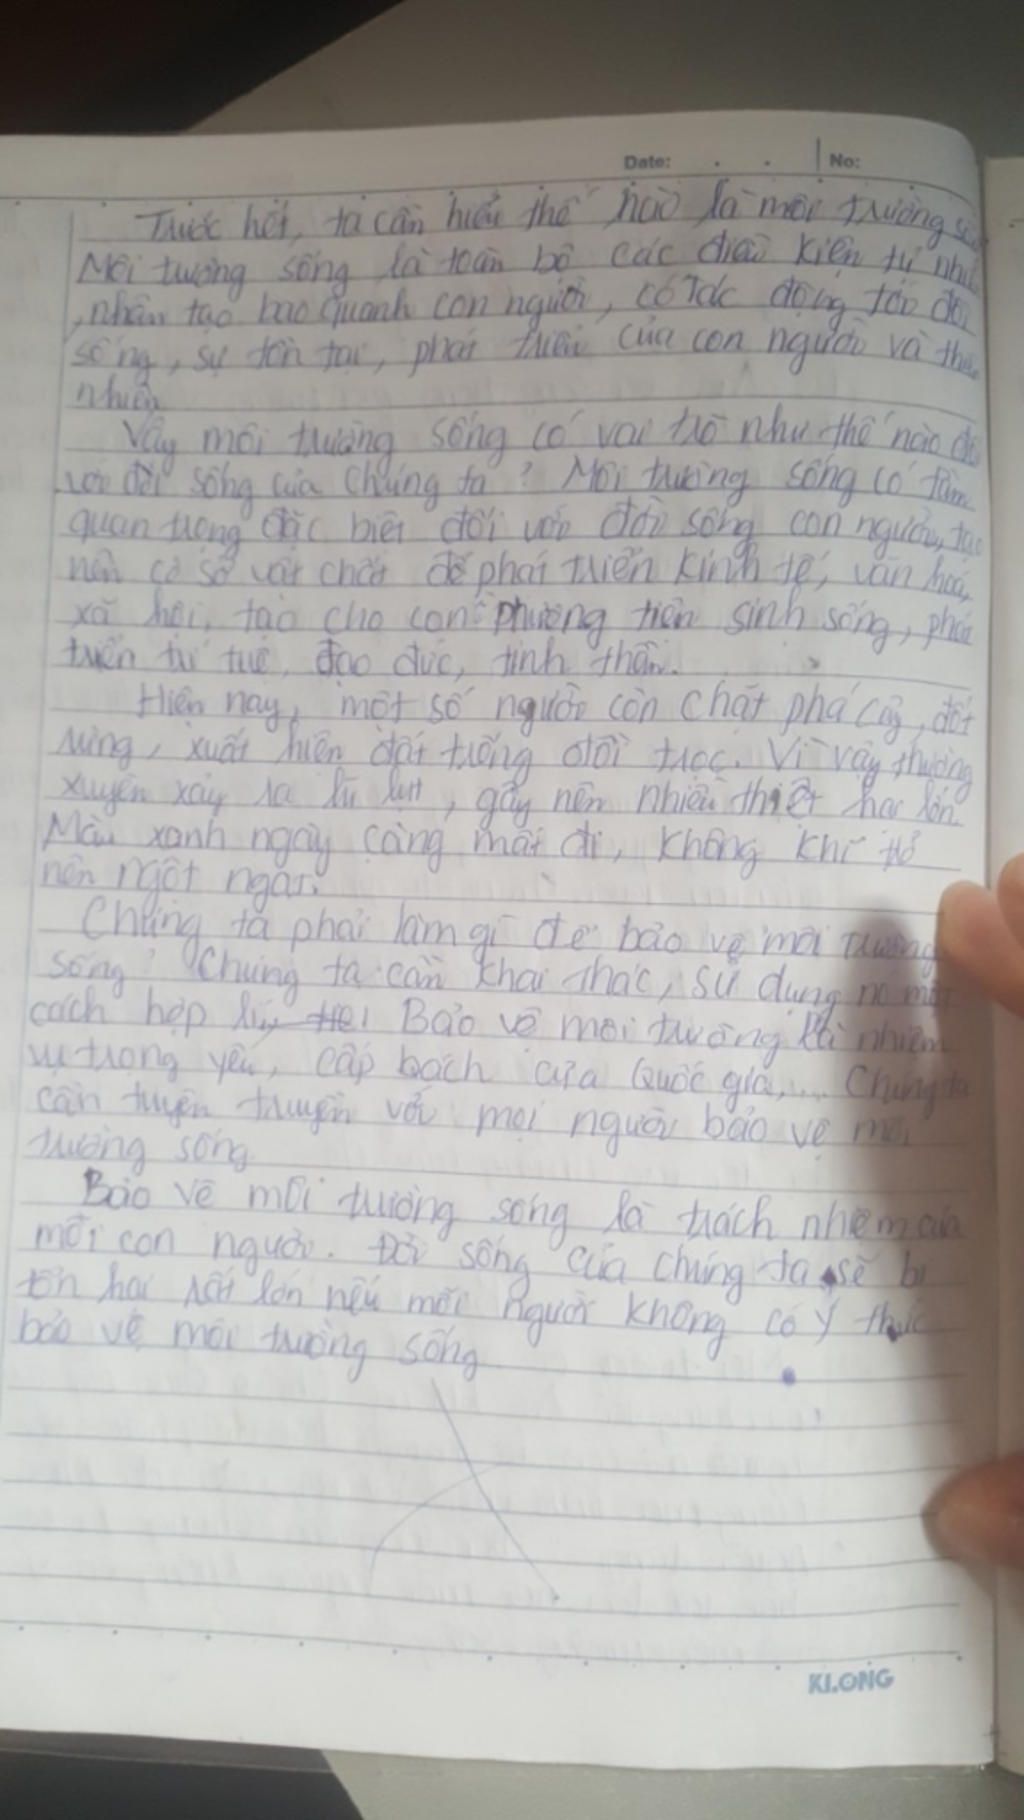 Date: No:
Trước hết, ta cần hiểu thế nào là môi trường
Môi tường sống là toàn bộ các điều kiện tự
, nhân tạo bao quanh con người, có tác động tới
sống, sự tồn tại, phát triển của con người và
nhiên
Vậy môi trường sống có vai trò như thế nào
với đời sống của chúng ta? Môi trường sống có tầm
quan trọng đặc biệt đối với đời sống con người, tạo
nên cơ sở vật chất để phát triển kinh tế, văn hoá,
xã hội, tạo cho con phương tiện sinh sống, phát
triển trí tuệ, đạo đức, tinh thần.
Hiện nay, một số người còn chặt phá cây, đốt
rừng, xuất hiện đất trống đồi trọc. Vì vậy thường
xuyên xảy ra lũ lụt, gây nên nhiều thiệt hại lớn.
Màu xanh ngày càng mất đi, không khí trở
nên ngột ngạt.
Chúng ta phải làm gì để bảo vệ môi trường
sống? Chúng ta cần khai thác, sử dụng nó một
cách hợp lí, Bảo vệ môi trường là nhiệm
vụ trọng yếu, cấp bách của Quốc gia,... Chúng ta
cần tuyên truyền với mọi người bảo vệ môi
trường sống
Bảo vệ môi trường sống là trách nhiệm của
mỗi con người. Đời sống của chúng ta sẽ bị
tổn hại rất lớn nếu mỗi người không có ý thức
bảo vệ môi trường sống
KLONG